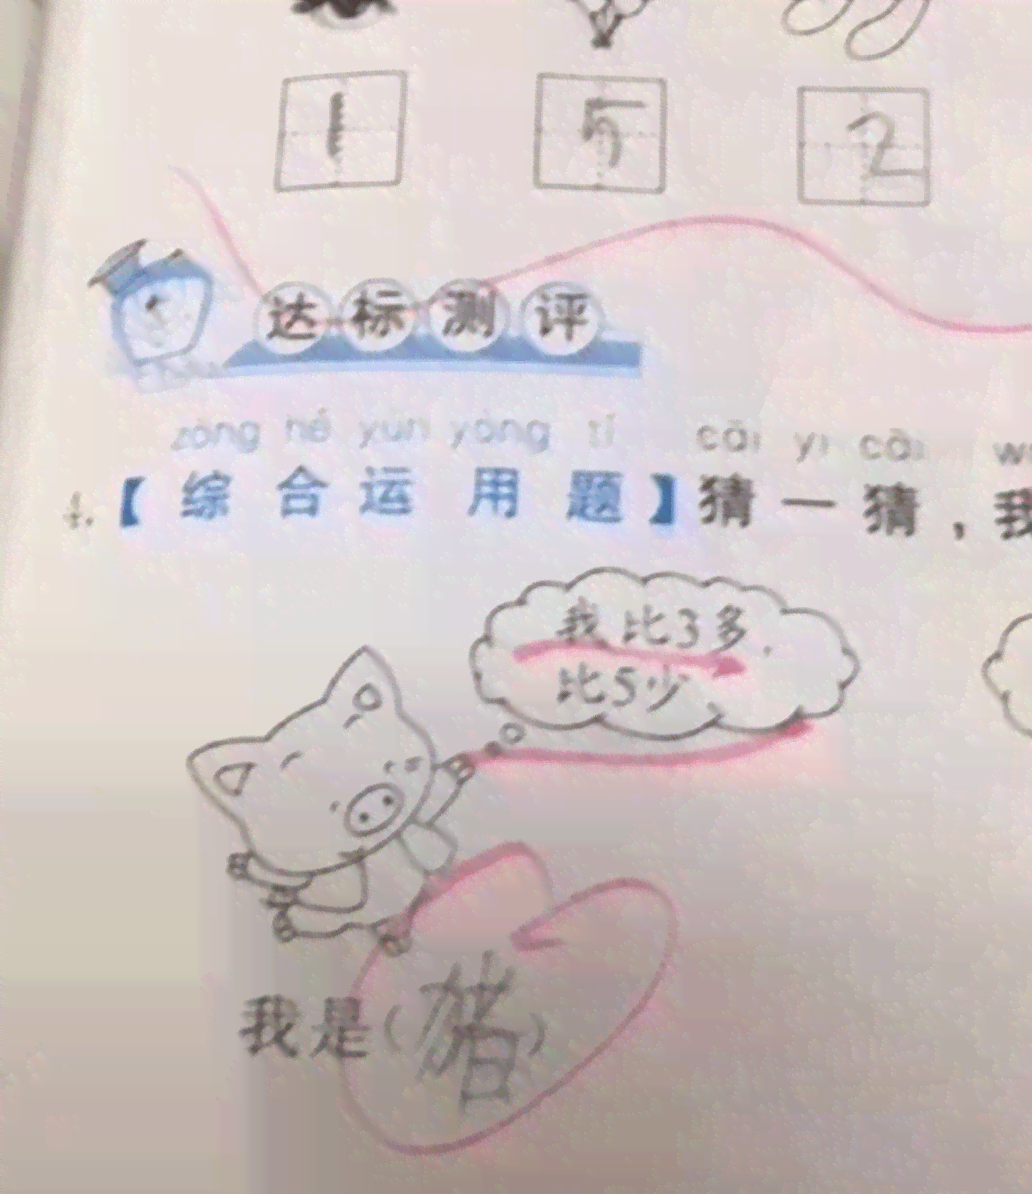 1 5 2
达标测评
zōng hé yùn yòng tí cāi yi cāi
4.【综合运用题】猜一猜，我
我比3多，
比5少。
我是（猪）